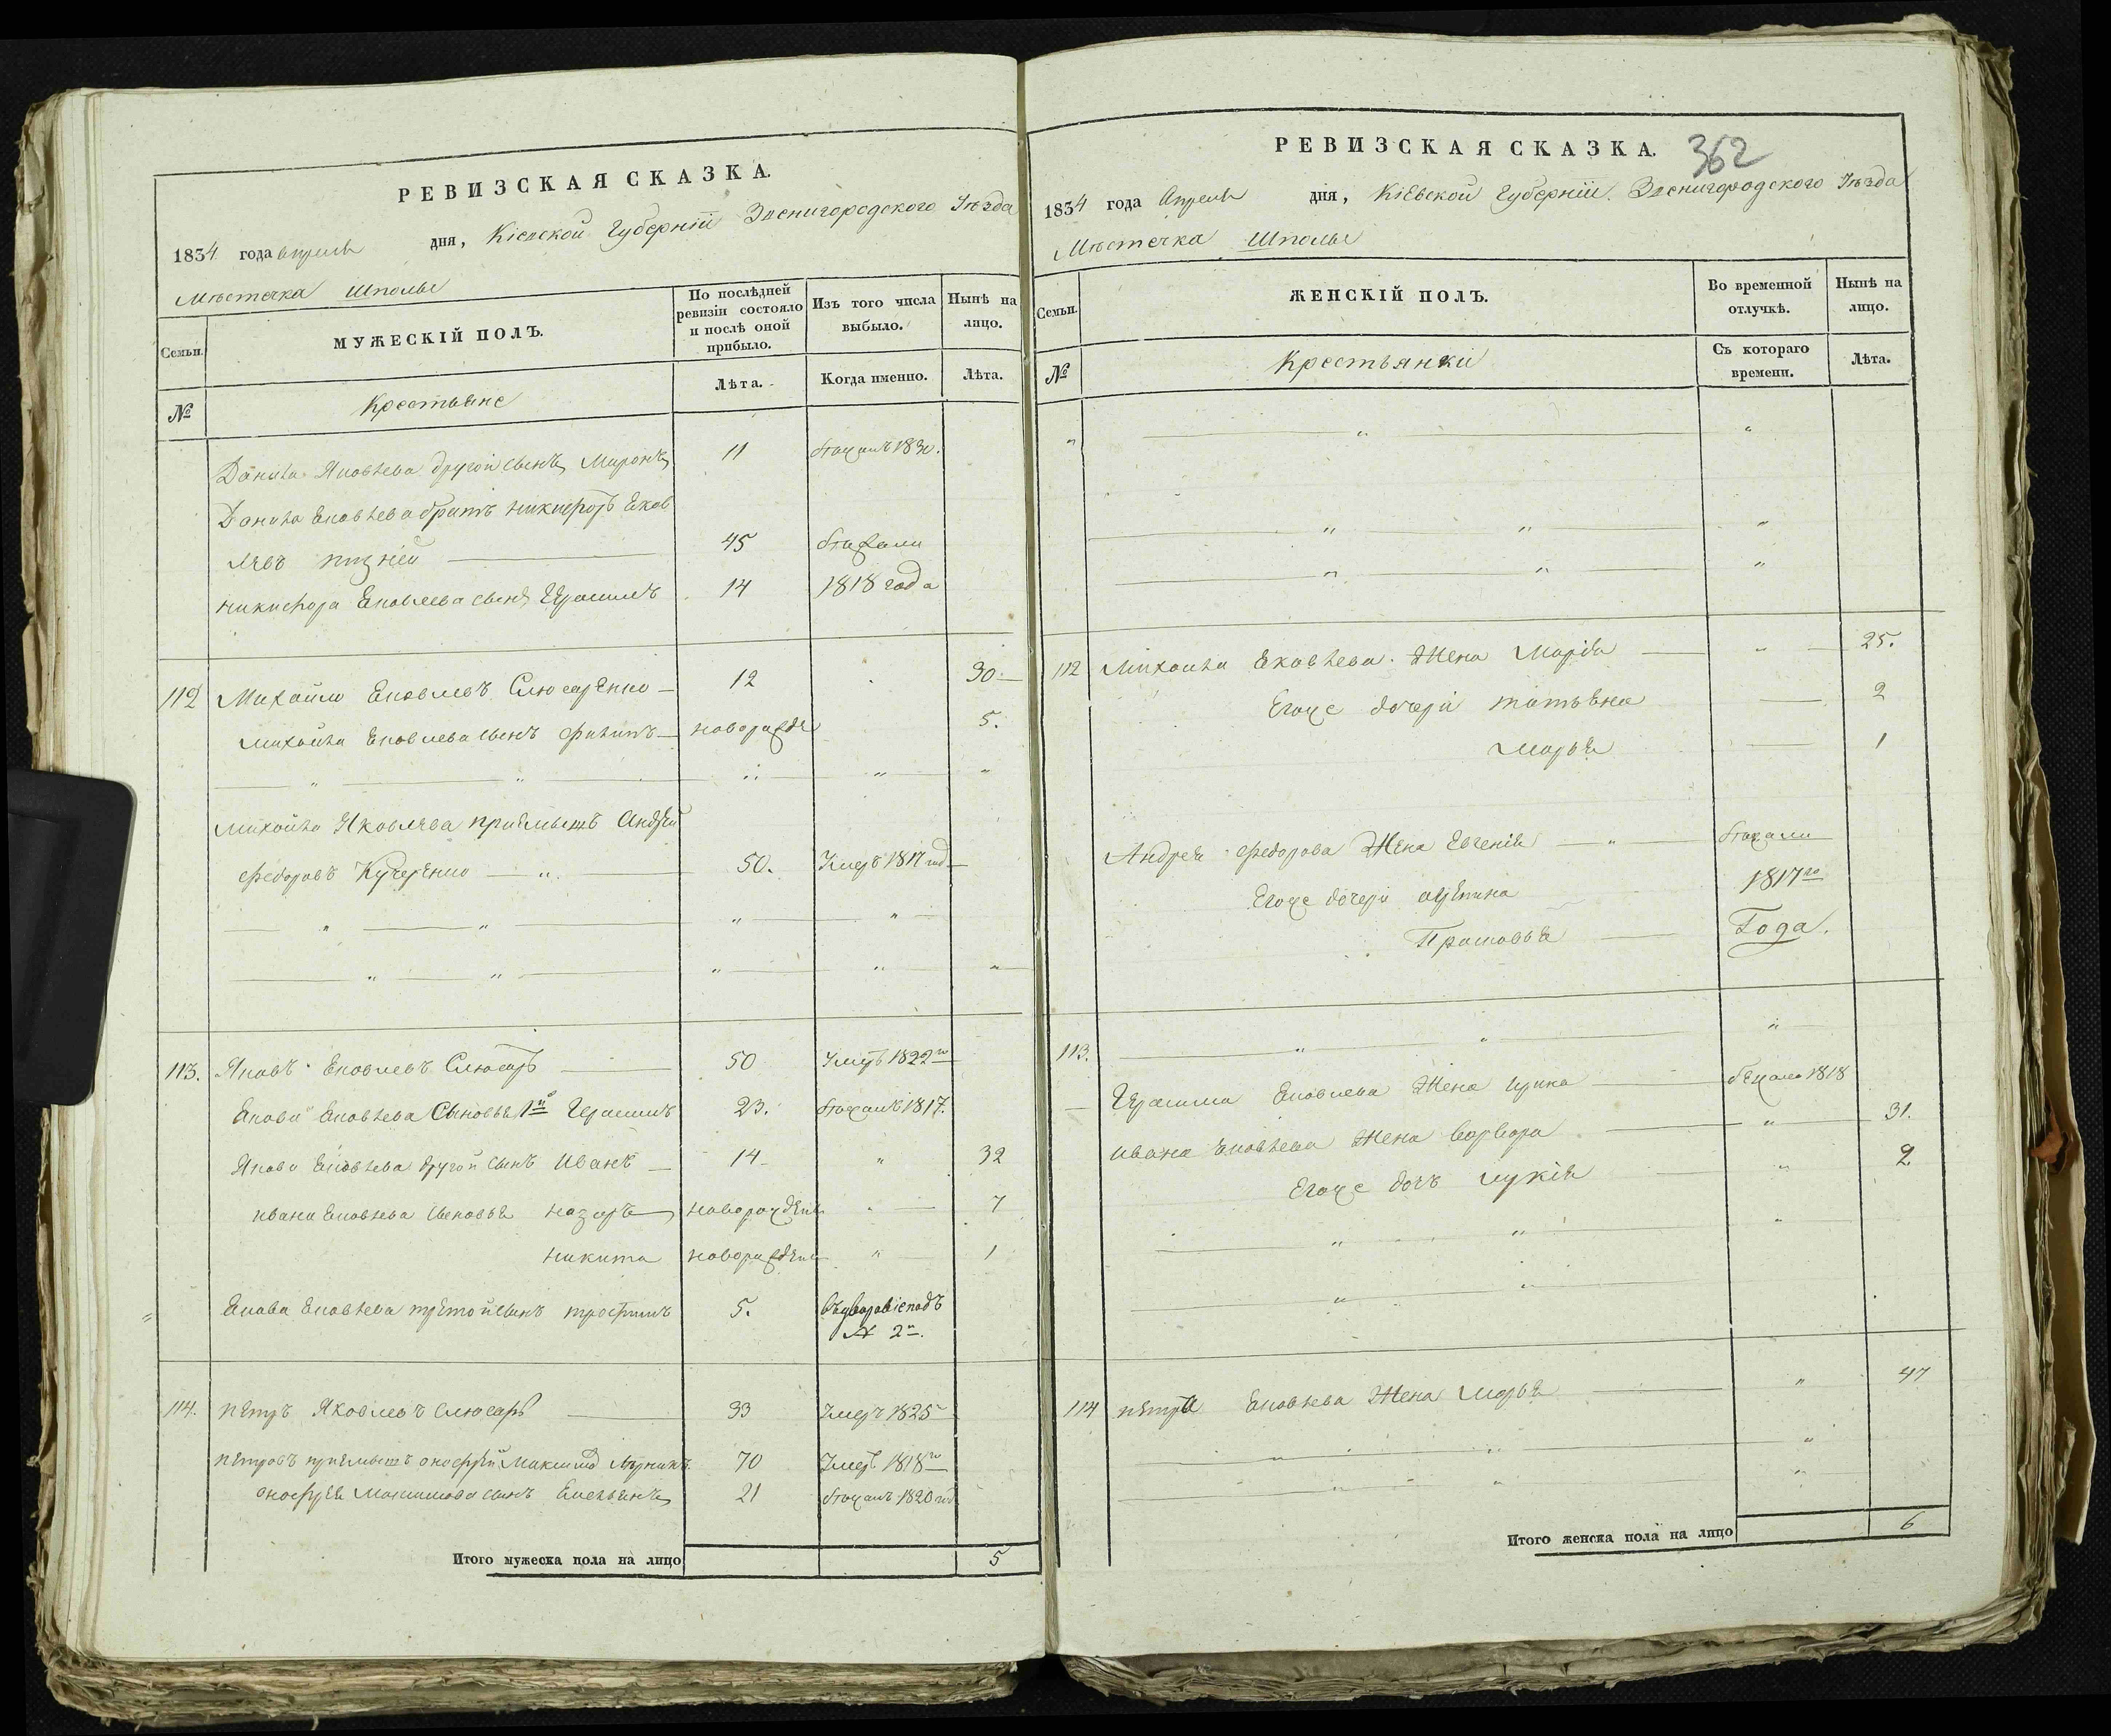 РЕВИЗСКАЯ СКАЗКА.
1834 года Апреля дня, Кіевской Губерніи Звенигородского Уѣзда
Мѣстечка Шполы
Семьи.
МУЖЕСКІЙ ПОЛЪ.
По послѣдней ревизіи состояло и послѣ оной прибыло.
Изъ того числа выбыло.
Нынѣ на лицо.
№
Крестьяне
Лѣта.
Когда именно.
Лѣта.
Данила Яковлева другой сынъ Миронъ 11 1830.
Данила Яковлева братъ Никифоръ Яков
левъ 45
Никифора Яковлева сынъ Герасимъ 14 1818 года
112 Михайло Яковлевъ Слюсаренко 12 30
Михайла Яковлева сынъ Филипъ 5.
Михайла Яковлева приемышъ Андрей
Федоровъ Кучеренко 50. Умеръ 1817 год
113. Яковъ Яковлевъ Слюсарь 50 Умеръ 1822го
Якова Яковлева Сыновья 1й Герасимъ 23. 1817.
Якова Яковлева другой сынъ Иванъ 14 32
Ивана Яковлева сыновья Назаръ 7
Никита 1
Якова Яковлева третой сынъ Трофимъ 5.
№ 2
114. Петръ Яковлевъ Слюсарь 33 Умеръ 1825
Петровъ приемышъ Онофрей Максимов 70 Умеръ 1818го
Онофрея Максимова сынъ Емельянъ 21 1820 год
Итого мужеска пола на лицо 5
РЕВИЗСКАЯ СКАЗКА.
362
1834 года Апреля дня, Кіевской Губерніи Звенигородского Уѣзда
Мѣстечка Шполы
Семьи.
ЖЕНСКІЙ ПОЛЪ.
Во временной отлучкѣ.
Нынѣ на лицо.
№
Крестьянки
Съ котораго времени.
Лѣта.
112 Михайла Яковлева Жена Марія 25.
Егоже дочери Татьяна 2
Марья 1
Андрея Федорова Жена Евгенія
Егоже дочери 1817го
Прасковья Года.
113.
Герасима Яковлева Жена Ирина 1818
Ивана Яковлева Жена Варвара 31.
Егоже дочь Лукія 2
114 Петра Яковлева Жена Марья 47
Итого женска пола на лицо 6